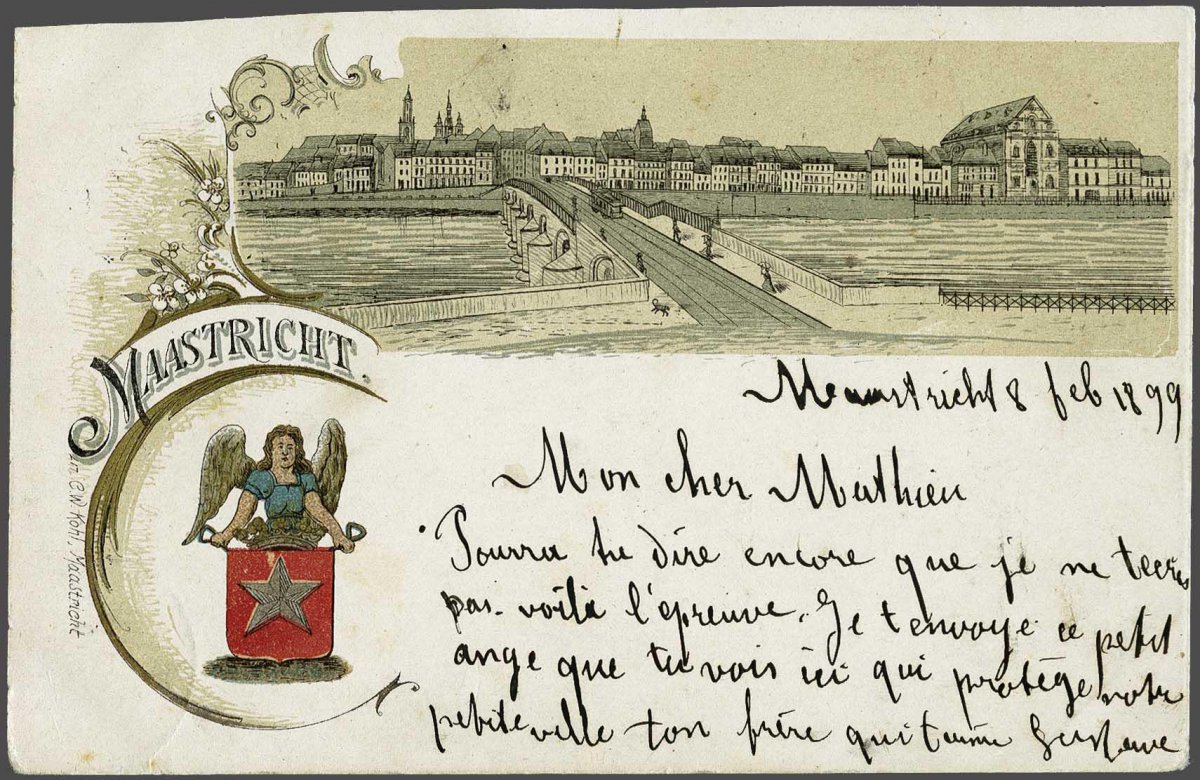 MAASTRICHT.
Lit. C.W. Kohl, Maastricht
Maastricht 8 feb 1899
Mon cher Mathieu
Pourra tu dire encore que je ne tecris
pas. voilà l'épreuve. Je t envoye ce petit
ange que tu vois ici qui protège notre
petite ville ton frère qui taime Gustave